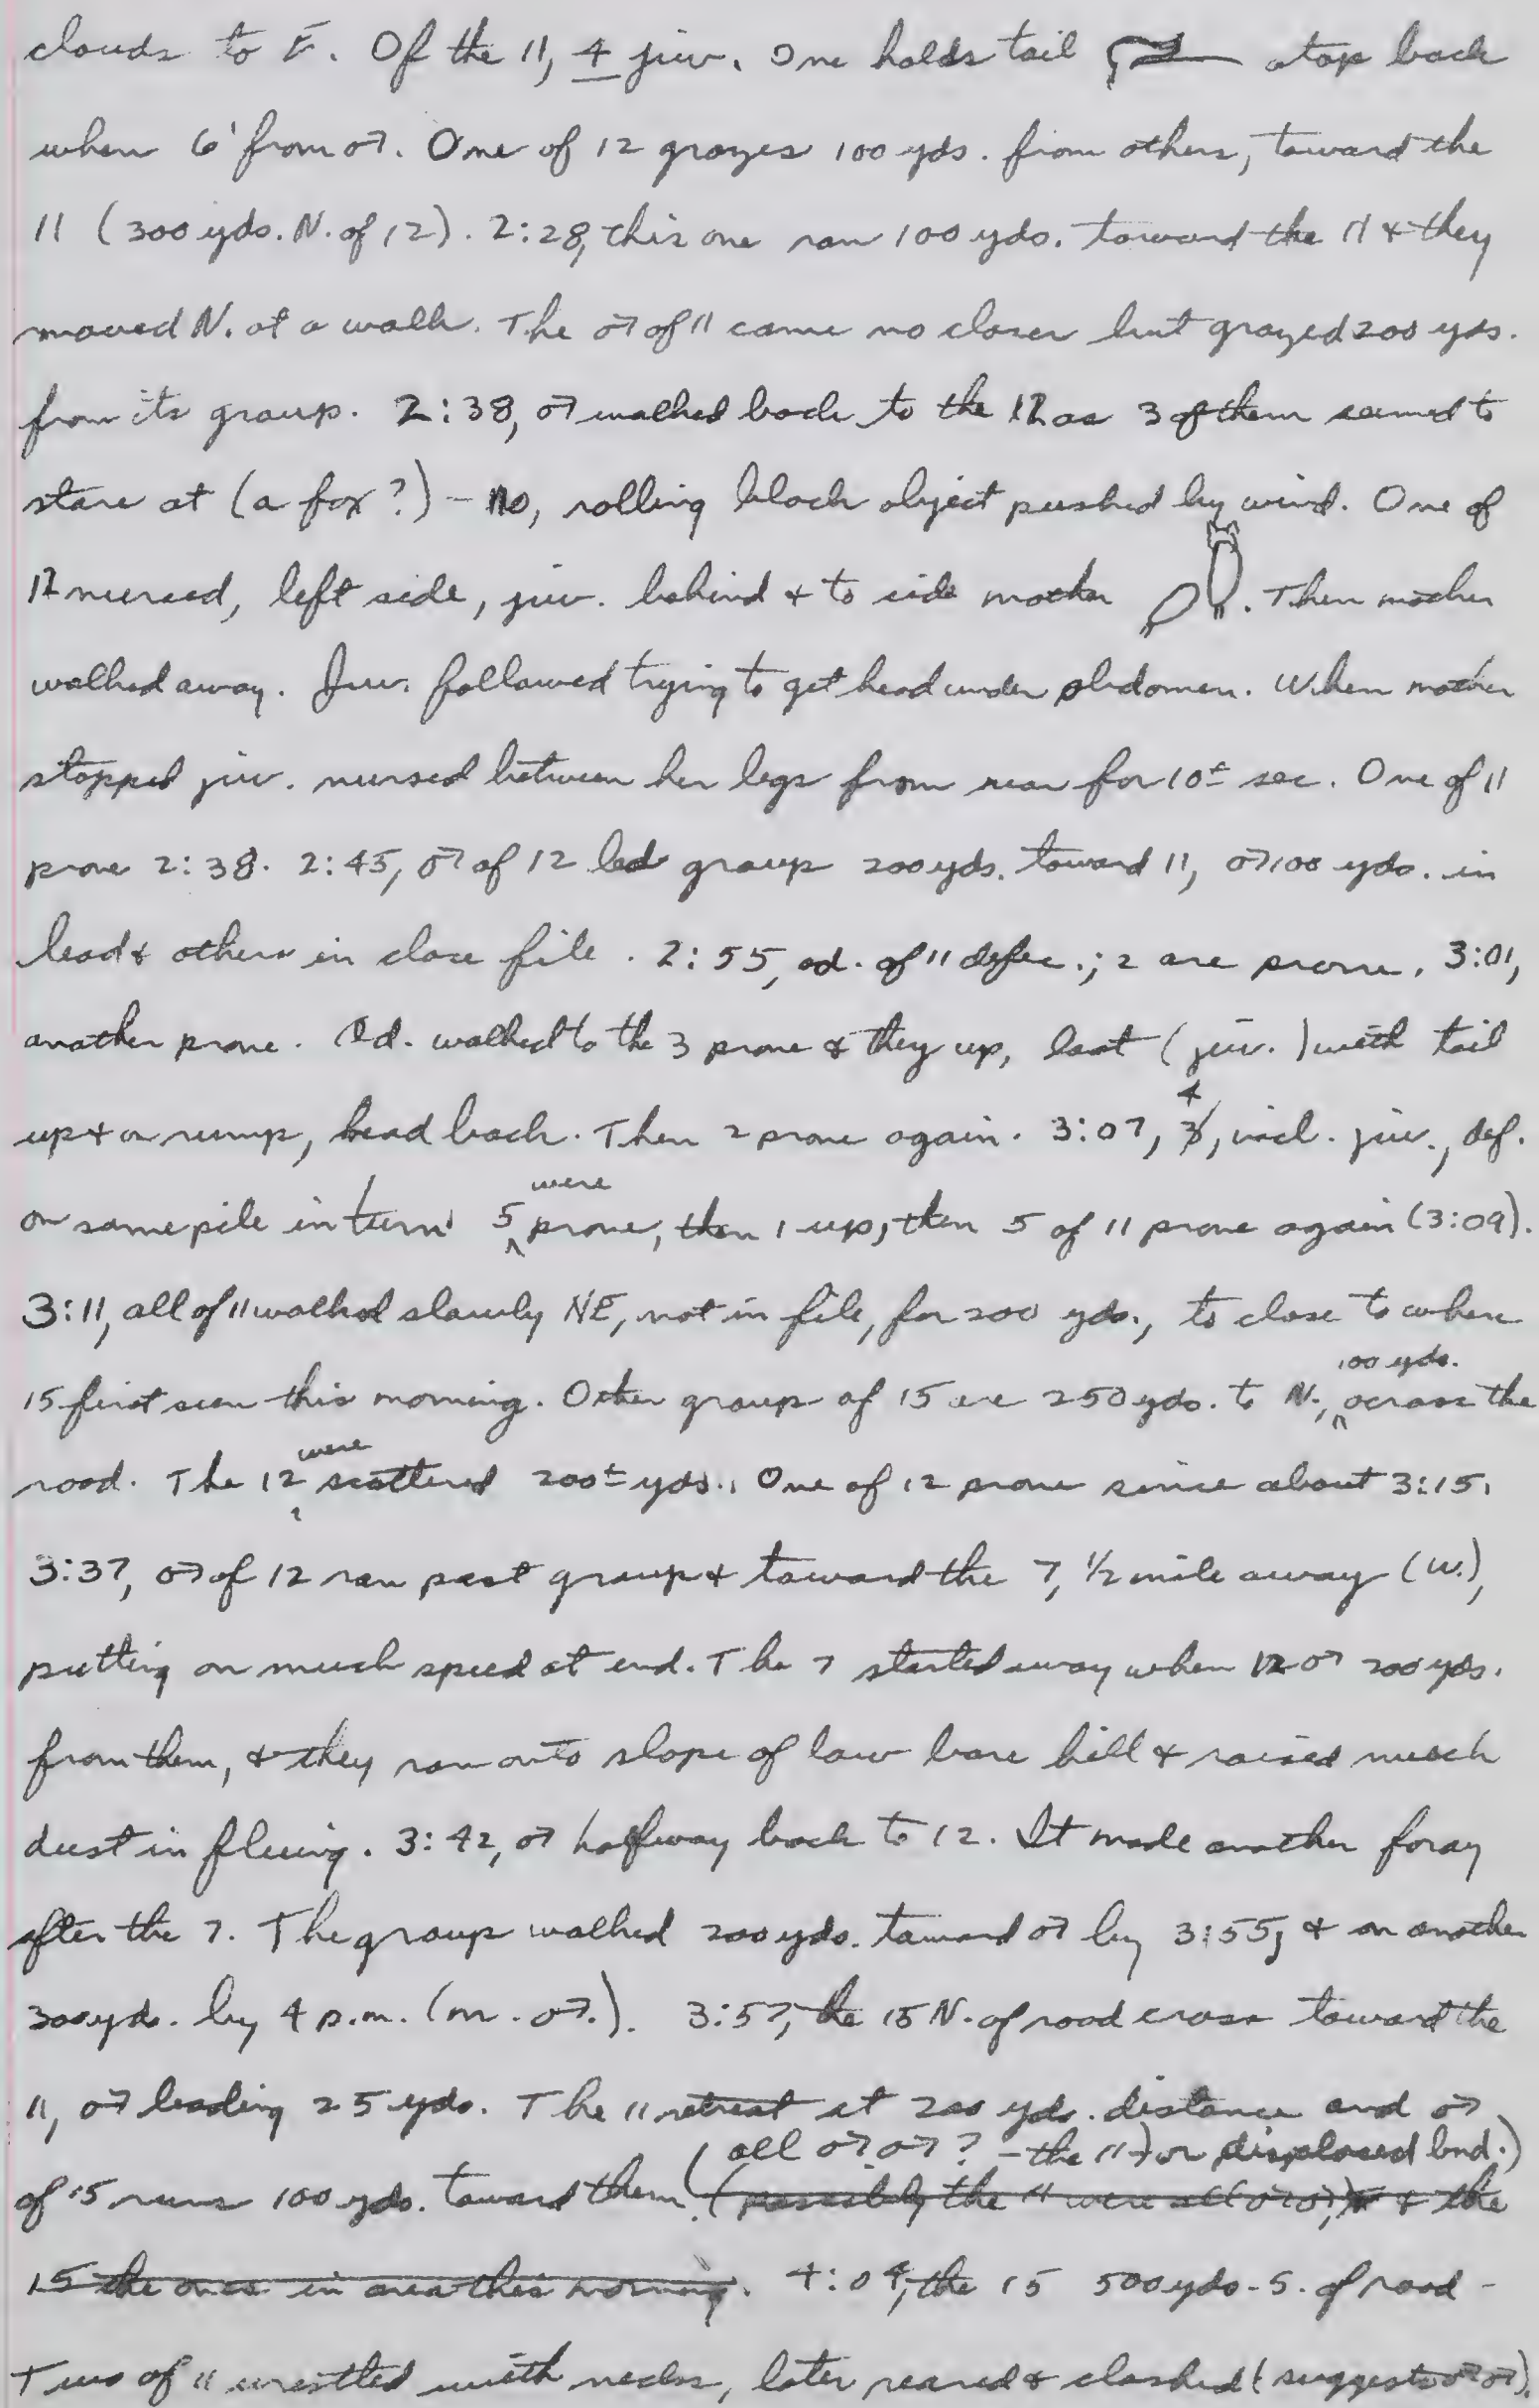 clouds to E. Of the 11, 4 juv. One holds tail atop back
when 6' from ♂. One of 12 grazes 100 yds. from others, toward the
11 (300 yds. N. of 12). 2:28, this one ran 100 yds. toward the 11 & they
moved N. at a walk. The ♂ of 11 came no closer but grazed 200 yds.
from its group. 2:38, ♂ walked back to the 12 as 3 of them seemed to
stare at (a fox?) - no, rolling black object pushed by wind. One of
12 nursed, left side, juv. behind & to side mother. Then mother
walked away. Juv. followed trying to get head under abdomen. When mother
stopped juv. nursed between her legs from rear for 10± sec. One of 11
prone 2:38. 2:45, ♂ of 12 led group 200 yds. toward 11, ♂ 100 yds. in
lead & others in close file. 2:55, ad. of 11 defec.; 2 are prone. 3:01,
another prone. Ad. walked to the 3 prone & they up, last (juv.) with tail
up & on rump, head back. Then 2 prone again. 3:07, 4, incl. juv., def.
on same pile in turn. 5 were prone, then 1 up, then 5 of 11 prone again (3:09).
3:11, all of 11 walked slowly NE, not in file, for 200 yds., to close to where
15 first seen this morning. Other group of 15 are 250 yds. to N., 100 yds. across the
road. The 12 were scattered 200± yds. One of 12 prone since about 3:15.
3:37, ♂ of 12 ran past group & toward the 7, 1/2 mile away (W.),
putting on much speed at end. The 7 started away when 12 ♂ 200 yds.
from them, & they ran onto slope of low bare hill & raised much
dust in fleeing. 3:42, ♂ halfway back to 12. It made another foray
after the 7. The group walked 200 yds. toward ♂ by 3:55, & on another
300 yds. by 4 p.m. (m. ♂.). 3:57, the 15 N. of road cross toward the
11, ♂ leading 25 yds. The 11 retreat at 200 yds. distance and ♂
of 15 runs 100 yds. toward them (all ♂♂? - the 11) or displaced bnd.)
(possibly the 11 were all ♂♂), & the
15 the ones in area this morning. 4:04, the 15 500 yds. S. of road -
Two of 11 wrestled with necks, later reared & clashed (suggests ♂♂).